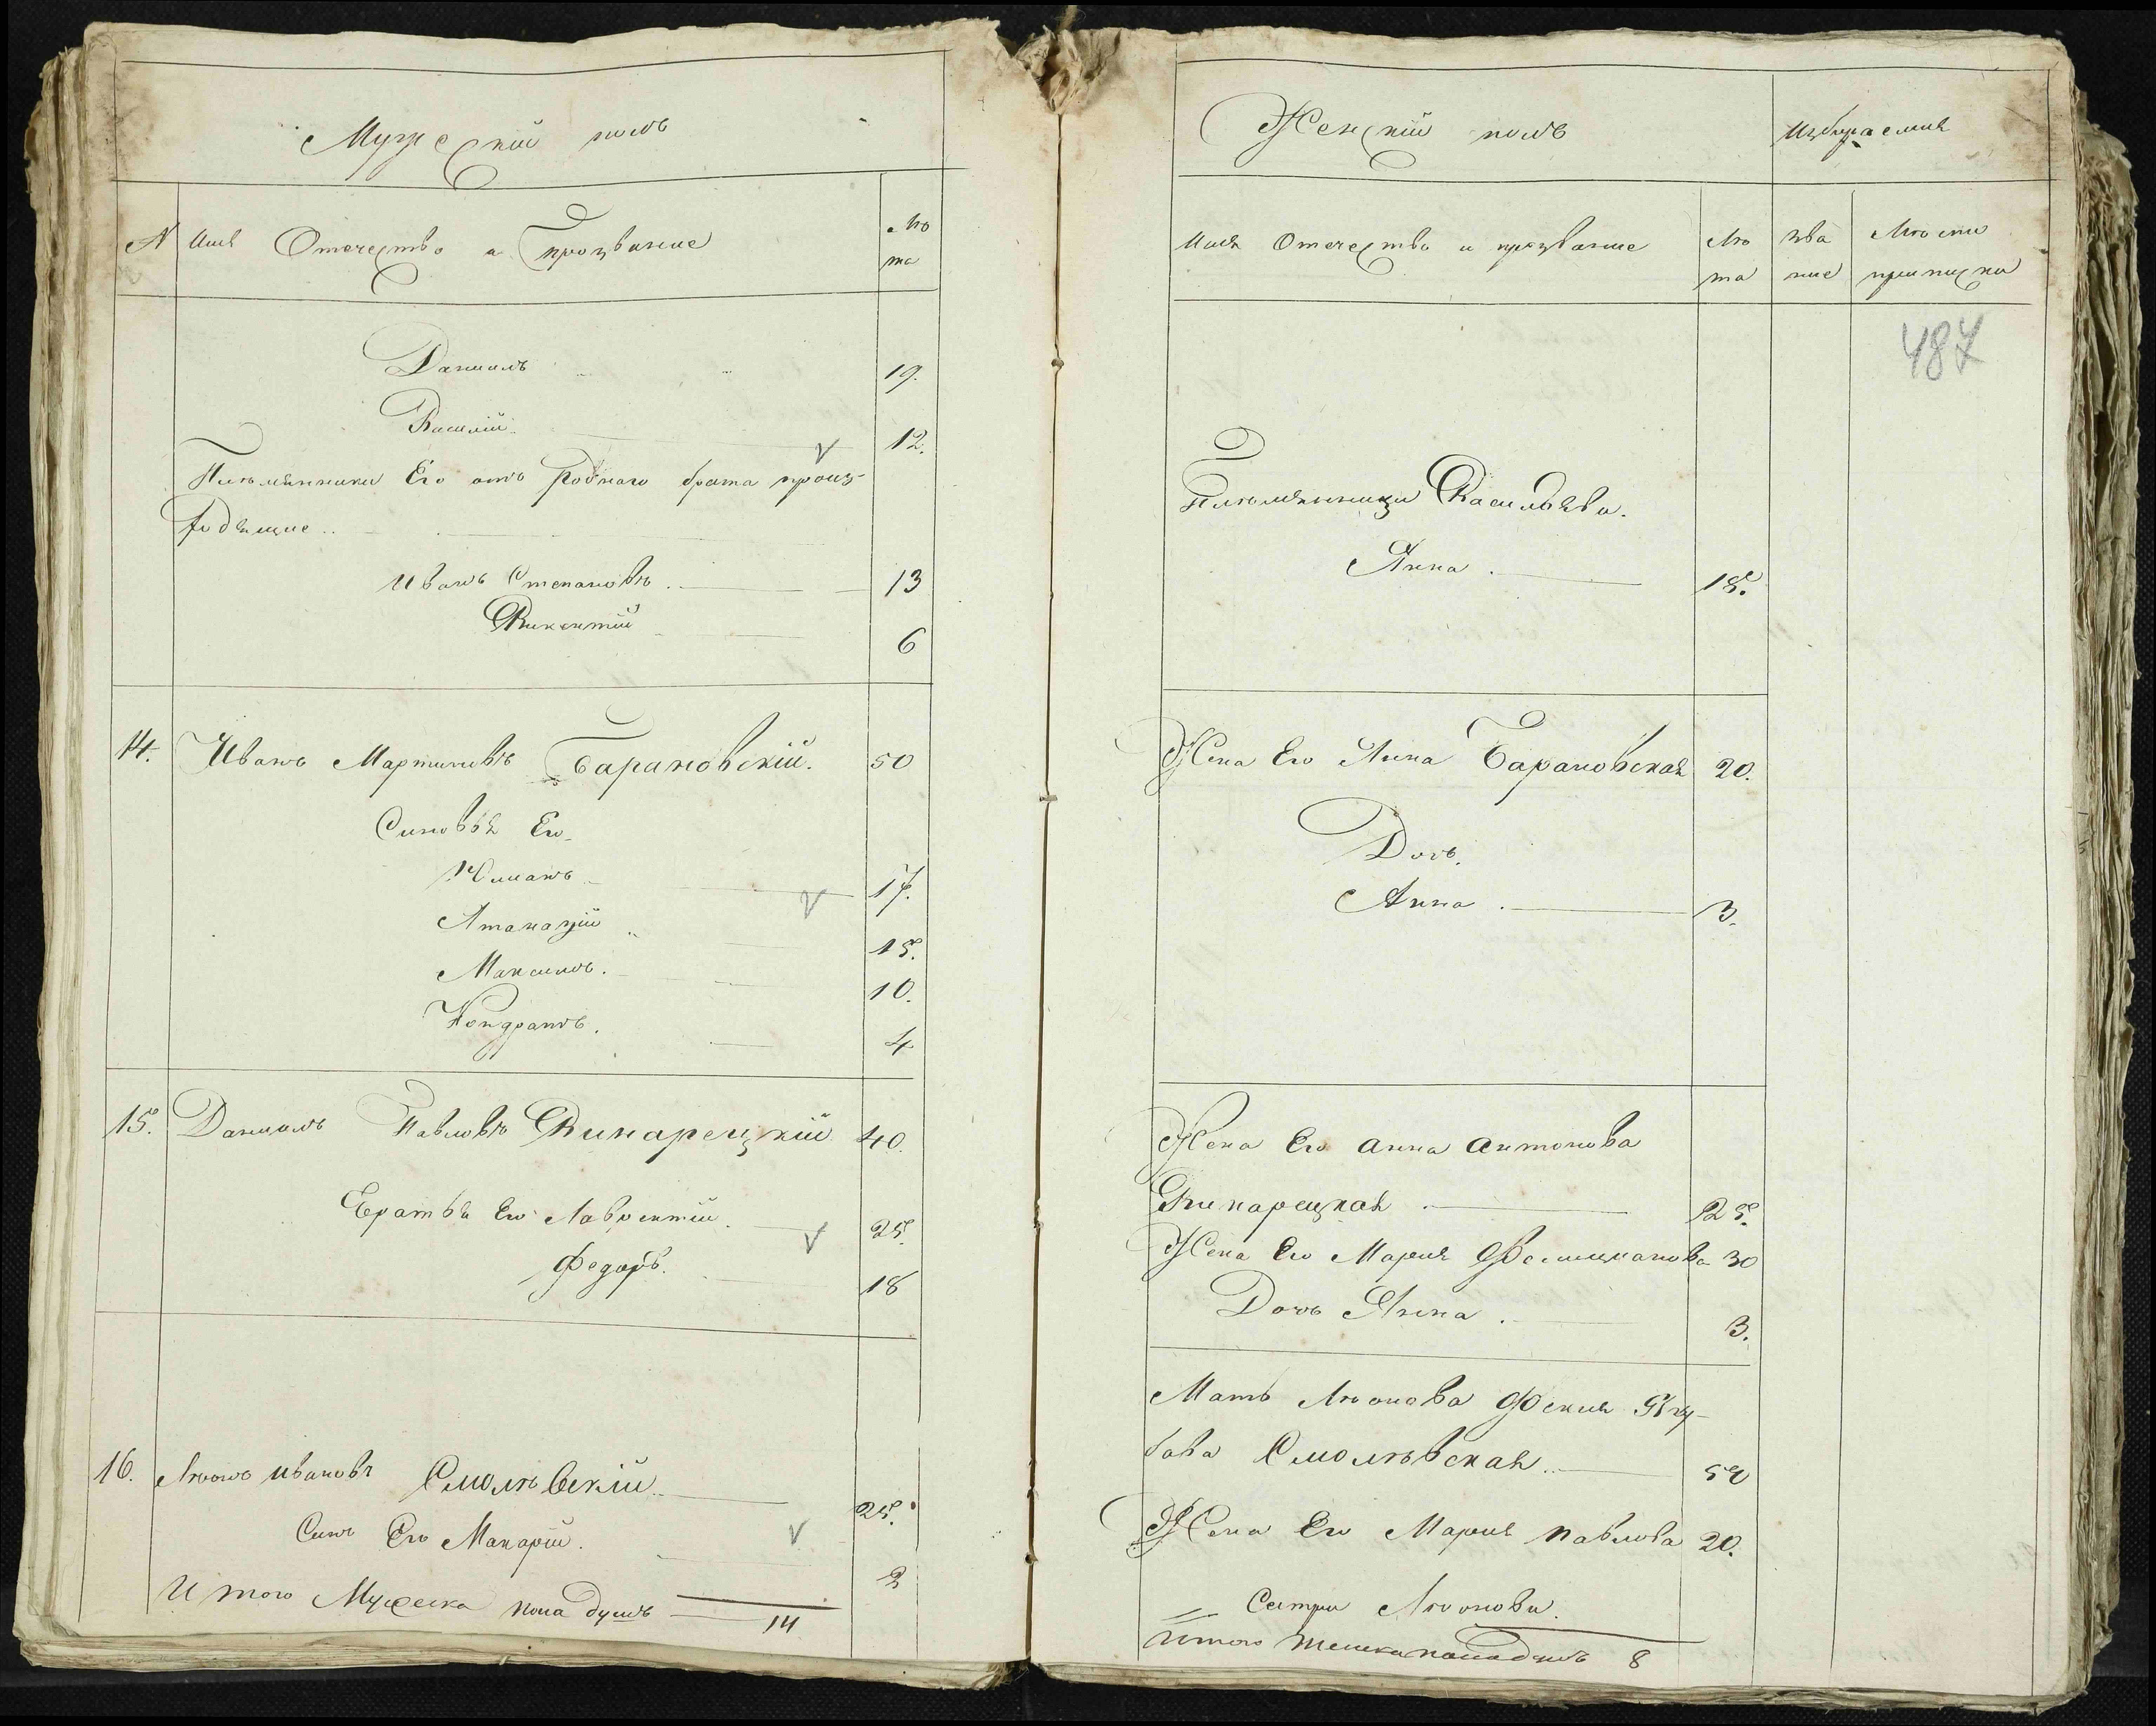 Мужескій полъ
N Имя Отечество и прозваніе Лѣ
та
Даніилъ 19.
Василій 12.
Племянники Его отъ Роднаго брата проис-
ходящие
Иванъ Степановъ 13
Викентій 6
14. Иванъ Мартиновъ Барановскій. 50
Синовья Его
Юлианъ 17.
Атаназій 15.
Максимъ. 10.
Кондратъ. 4
15. Даніилъ Павловъ Винарецкій 40.
Братья Его Лаврентій. 25.
Федоръ. 18
16. Лѣонъ Ивановъ Смолѣвскій 25.
Синъ Его Макарій. 2
Итого Мужеска пола душъ 14
Женскій полъ
Имя Отечество и прозваніе Лѣ зва Мѣсто
та ние приписки
487
Племянници Василіева.
Анна 18.
Жена Его Анна Барановская 20.
Дочь.
Анна 3.
Жена Его Анна Антонова
Винарецкая 25.
Жена Его Мария 30
Дочь Анна 3.
Мать Лѣонова Фекия
Смолѣвская 50
Жена Его Мария Павлова 20.
Сестри Лѣонови.
Итого женска пола душъ 8